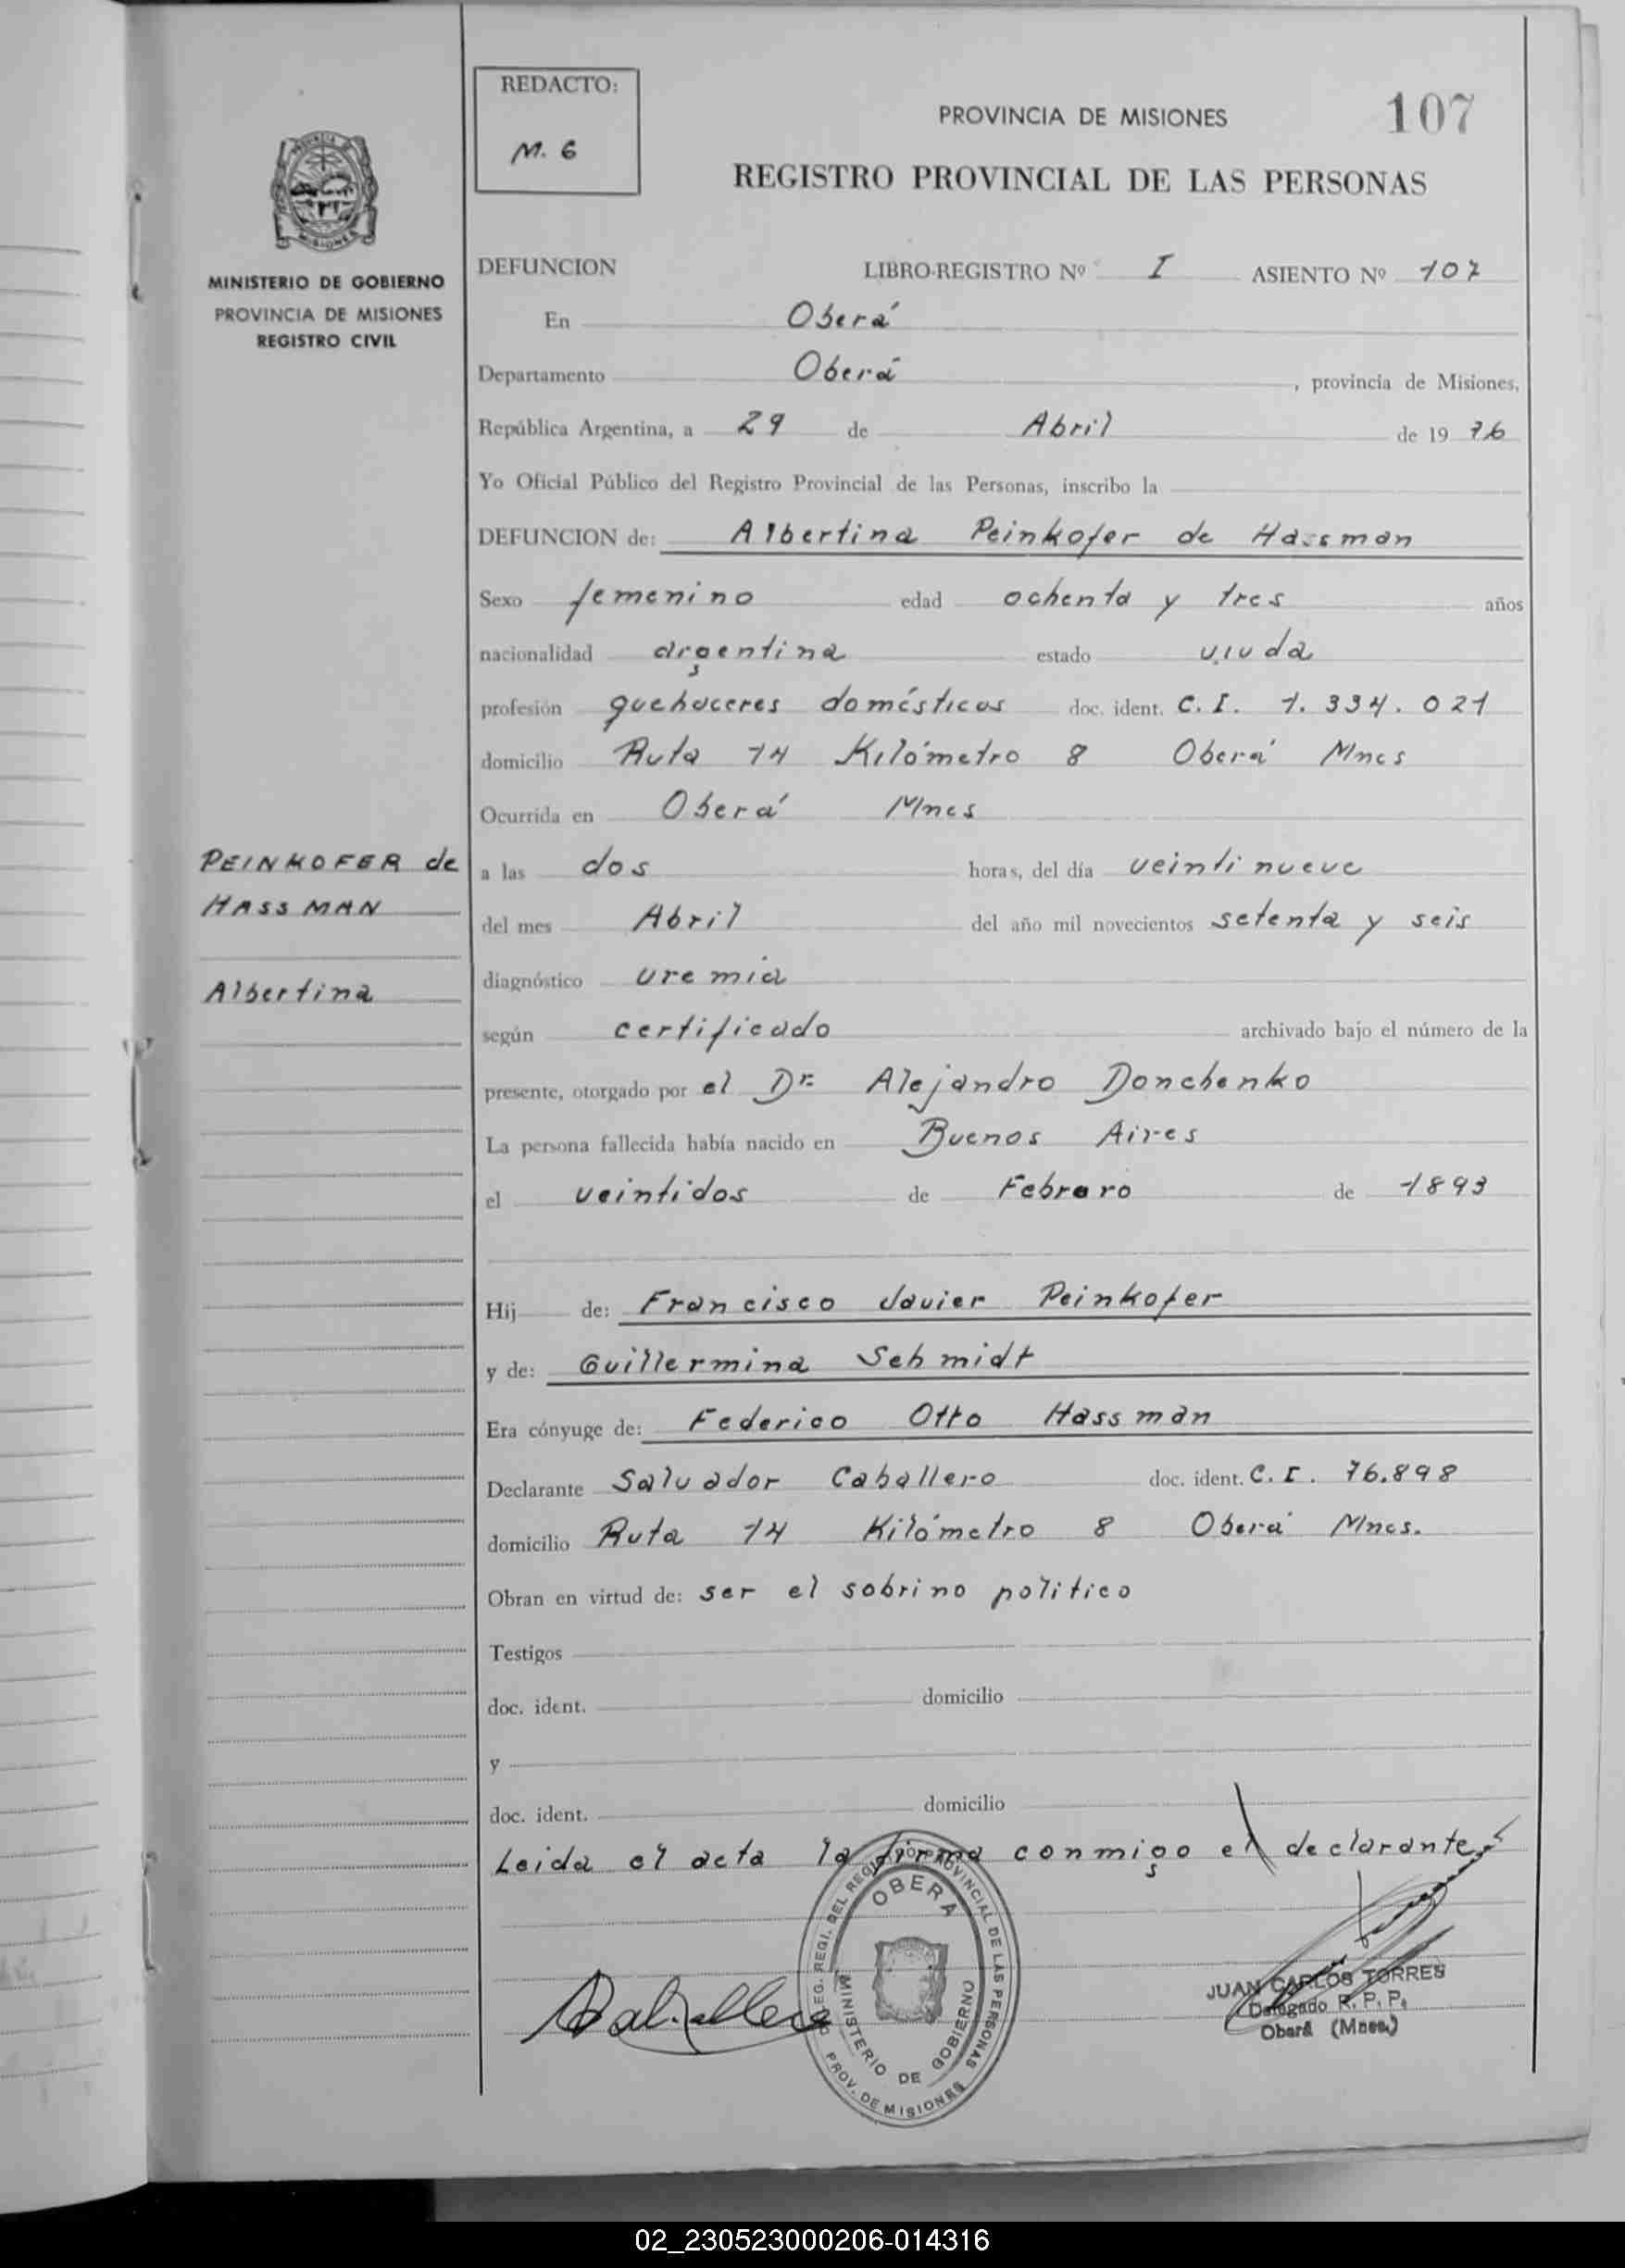 REDACTO:
M. G
PROVINCIA DE MISIONES
107
REGISTRO PROVINCIAL DE LAS PERSONAS
MISIONES
MINISTERIO DE GOBIERNO
PROVINCIA DE MISIONES
REGISTRO CIVIL
DEFUNCION LIBRO-REGISTRO Nº I ASIENTO Nº 107
En Oberá
Departamento Oberá , provincia de Misiones,
República Argentina, a 29 de Abril de 19 76
Yo Oficial Público del Registro Provincial de las Personas, inscribo la
DEFUNCION de: Albertina Peinkofer de Hassman
Sexo femenino edad ochenta y tres años
nacionalidad argentina estado viuda
profesión quehaceres domésticos doc. ident. C. I. 1.334.021
domicilio Ruta 14 Kilómetro 8 Oberá Mnes
Ocurrida en Oberá Mnes
PEINKOFER de
HASSMAN
Albertina
a las dos horas, del día veintinueve
del mes Abril del año mil novecientos setenta y seis
diagnóstico uremia
según certificado archivado bajo el número de la
presente, otorgado por el Dr. Alejandro Donchenko
La persona fallecida había nacido en Buenos Aires
el veintidos de Febrero de 1893
Hij de: Francisco Javier Peinkofer
y de: Guillermina Schmidt
Era cónyuge de: Federico Otto Hassman
Declarante Salvador Caballero doc. ident. C. I. 76.898
domicilio Ruta 14 Kilómetro 8 Oberá Mnes.
Obran en virtud de: ser el sobrino politico
Testigos
doc. ident. domicilio
y
doc. ident. domicilio
Leida el acta la firma conmigo el declarante
OBERA
MINISTERIO DE GOBIERNO
PROV. DE MISIONES
Caballero
JUAN CARLOS TORRES
Delegado R. P. P.
Oberá (Mnes.)
02_230523000206-014316